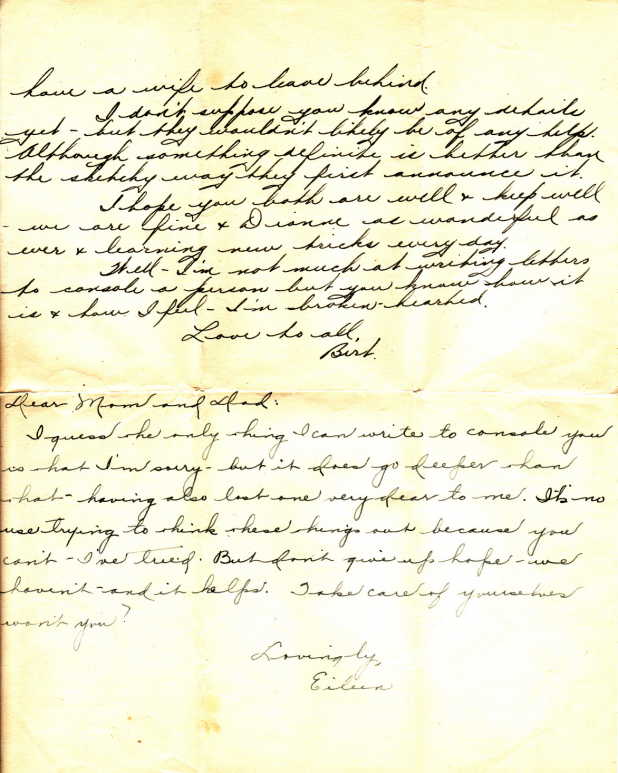 have a wife to leave behind.
I don't suppose you know any details
yet - but they wouldn't likely be of any help.
Although something definite is better than
the sketchy way they first announce it.
I hope you both are well & keep well
- we are fine & Dianne as wonderful as
ever & learning new tricks every day.
Well - I'm not much at writing letters
to console a person but you know how it
is & how I feel - I'm broken-hearted.
Love to all,
Bert.
Dear Mom and Dad:
I guess the only thing I can write to console you
is that I'm sorry - but it does go deeper than
that - having also lost one very dear to me. It's no
use trying to think these things out because you
can't - I've tried. But don't give up hope - we
haven't - and it helps. Take care of yourselves
won't you?
Lovingly,
Eileen